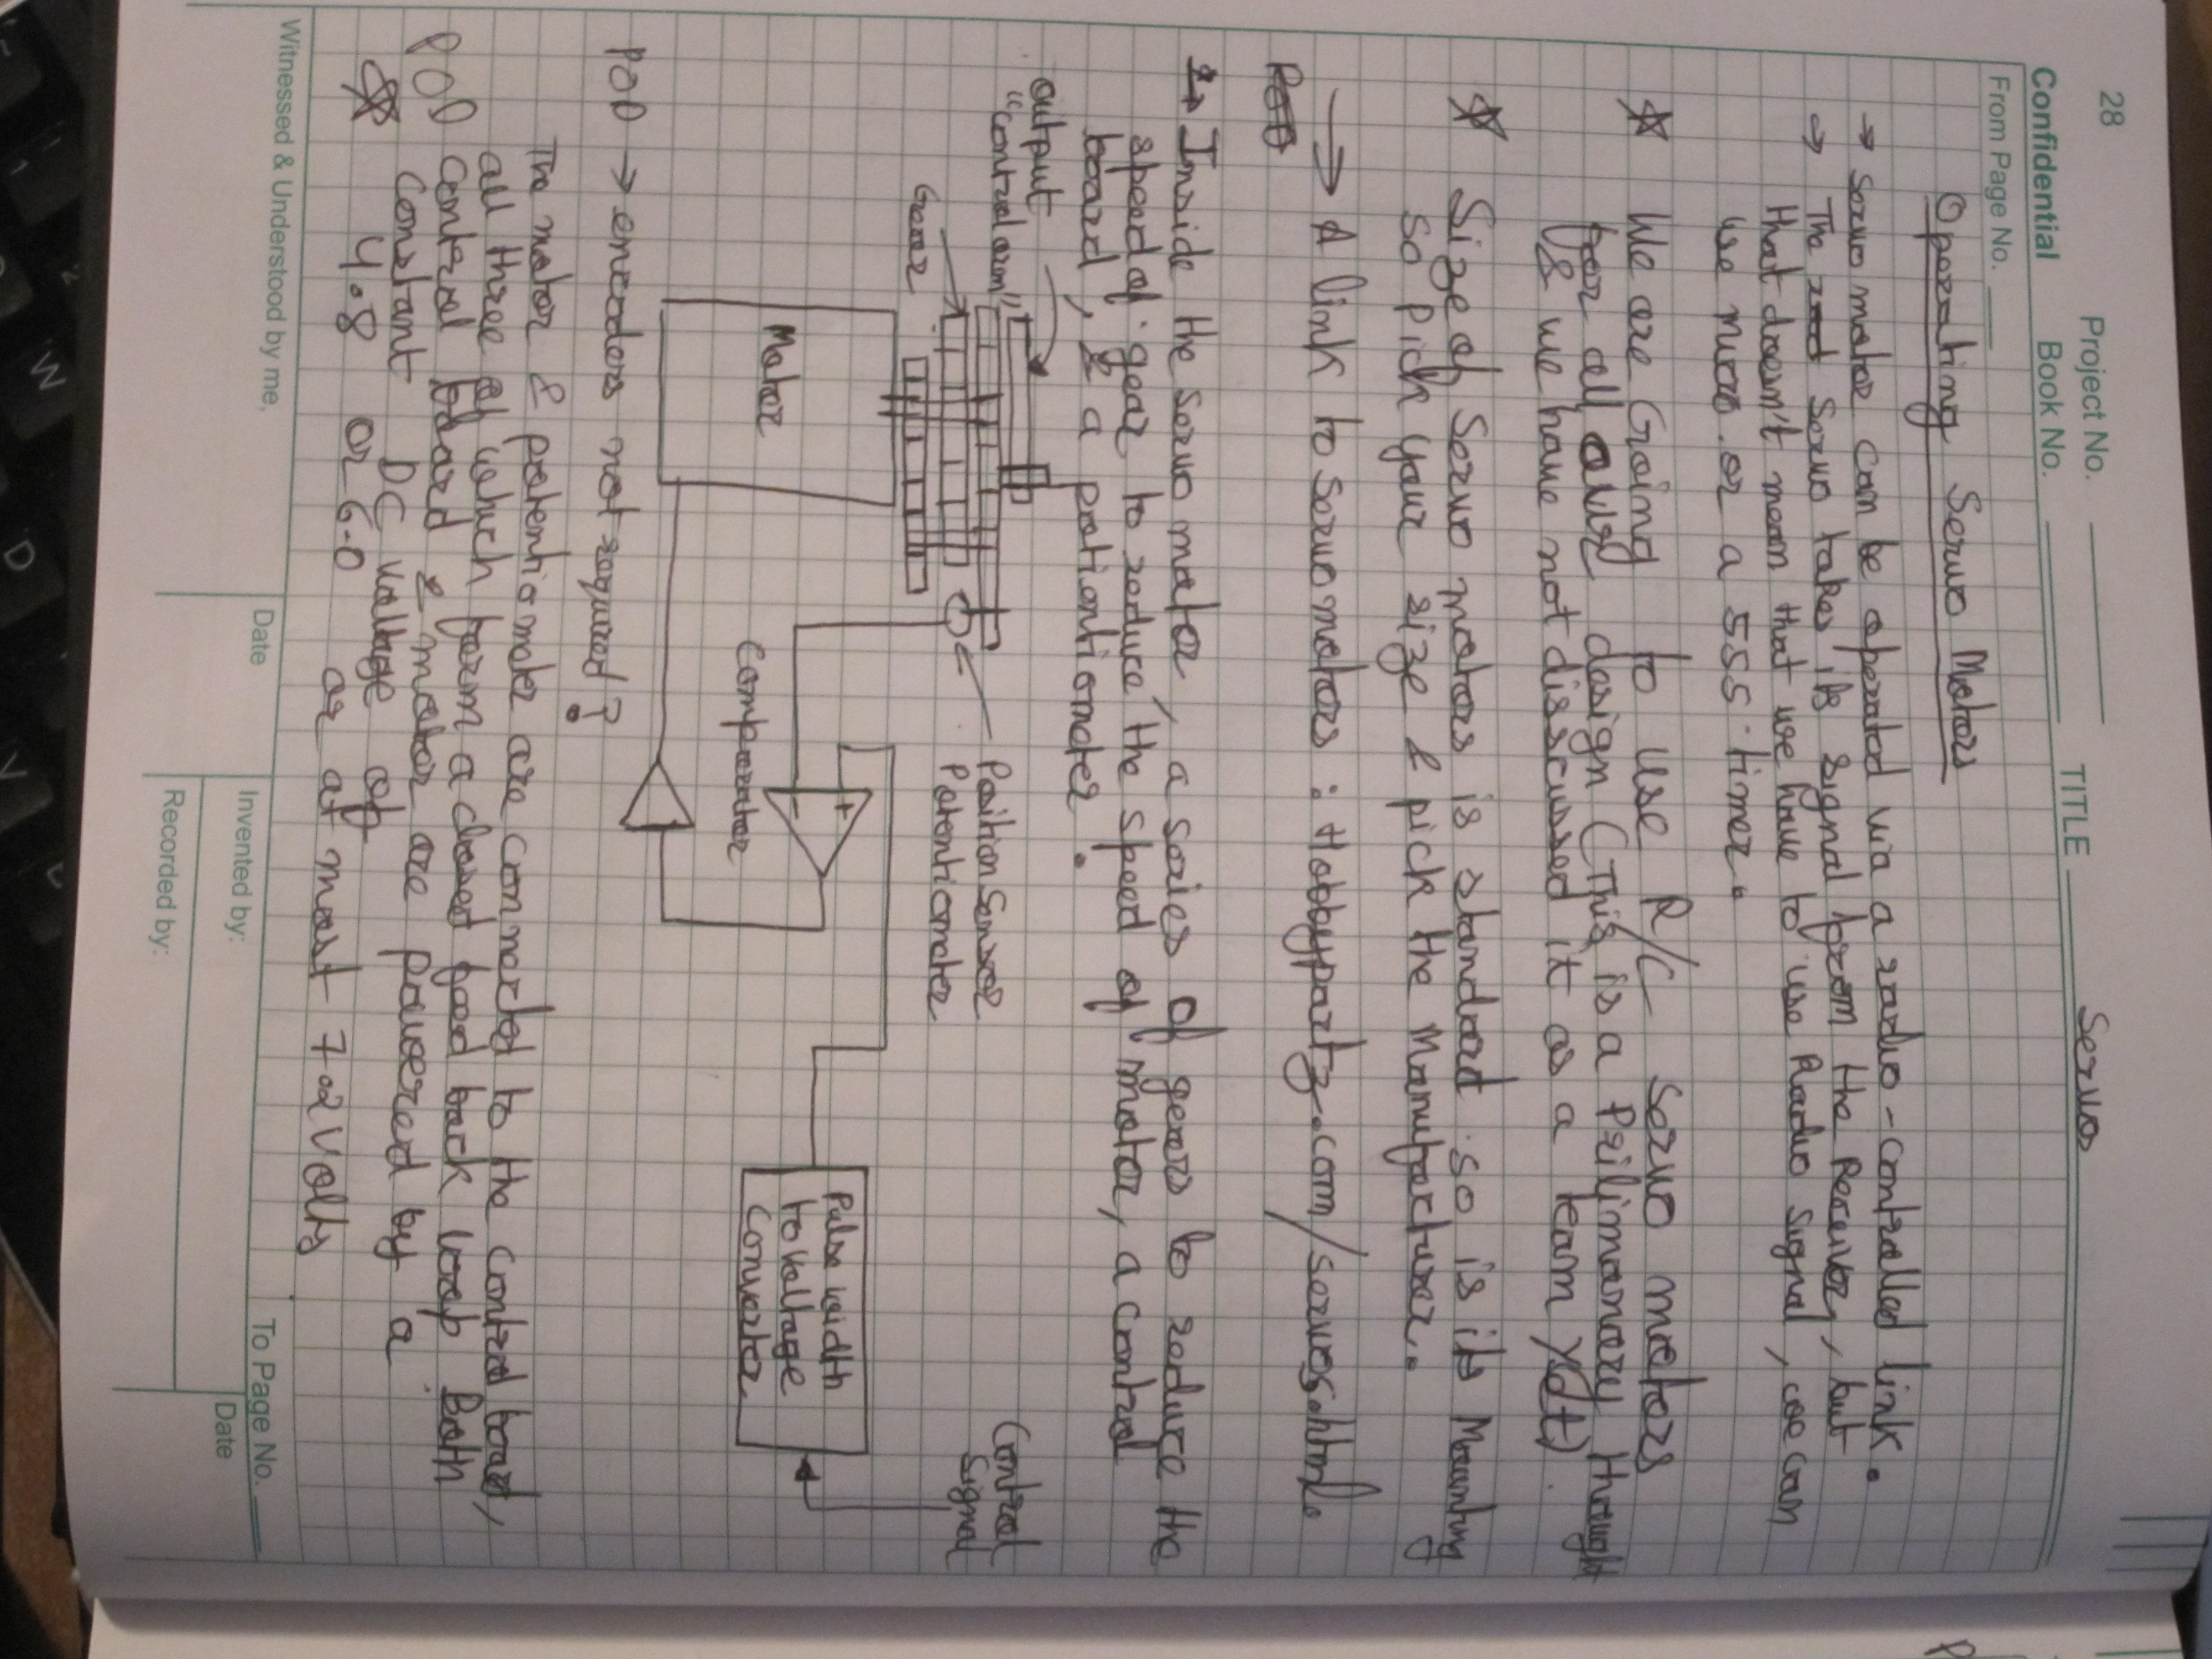 28
Project No.
Confidential
Book No.
TITLE
Servos
From Page No.
Operating Servo Motors
→ Servo motor can be operated via a radio-controlled link.
→ The Servo takes its signal from the Receiver, but
that doesn't mean that we have to use Radio Signal, we can
use micro. or a 555 timer.
☆ We are Going to use R/C Servo motors
for all our design (This is a Prilimanery thought
& we have not disscussed it as a team yet).
☆ Size of Servo motors is standard so is its Mounting
so pick your size & pick the Manufacturer.
→ A link to Servo motors : Hobbypartz.com/servos.html.
→ Inside the servo motor, a series of gears to reduce the
speed of gear to reduce the speed of motor, a control
board, & a potentiometer.
output
"control arm"
Gear
Motor
Position Sensor
Potentiometer
Comparator
+
-
Pulse width
to Voltage
Converter
Control
Signal
POD → encoders not required?
The motor & potentiometer are connected to the control board,
all three of which form a closed feed back loop Both
POD Control board & motor are powered by a
Constant DC voltage of
☆ 4.8 or 6.0 or at most 7.2 Volts
Witnessed & Understood by me,
Date
Invented by:
Recorded by:
To Page No.
Date